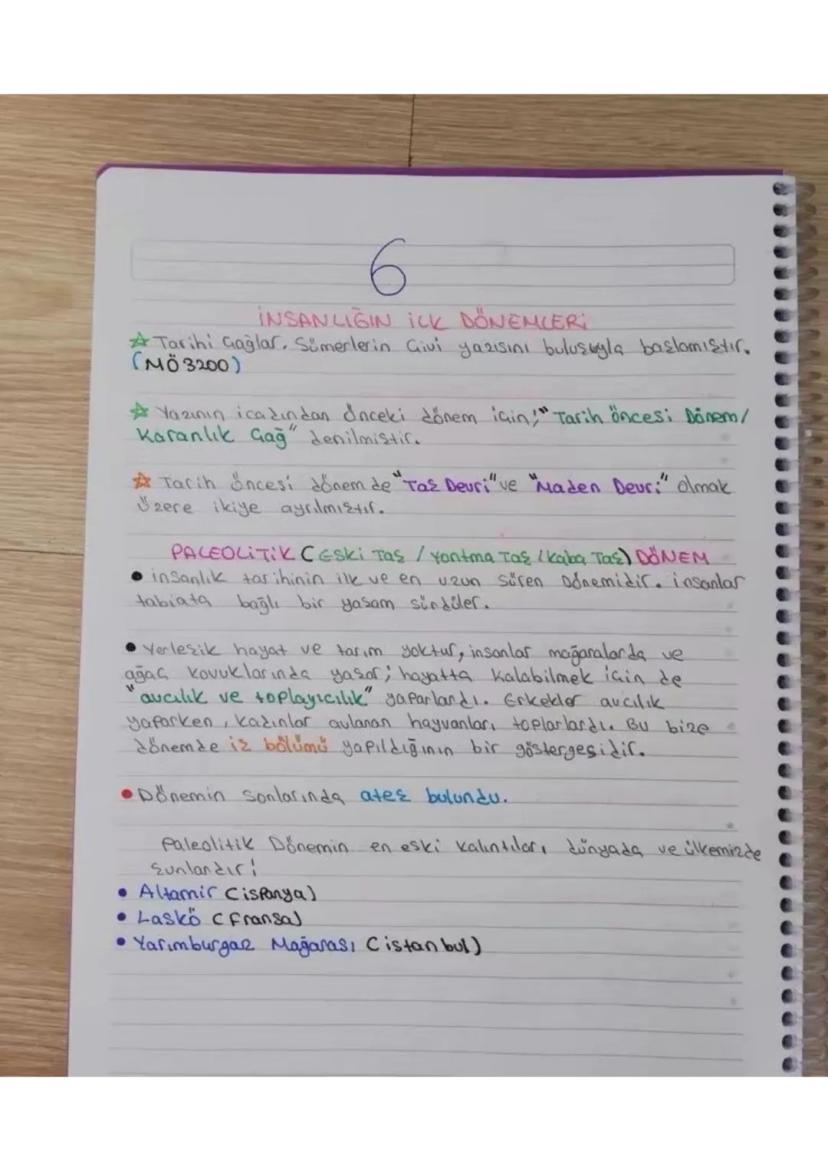 6
İNSANLIĞIN İLK DÖNEMLERİ
Tarihi Çağlar, Sümerlerin Çivi yazısını buluşuyla başlamıştır.
(MÖ3200)
Yazının icadından önceki dönem için; "Tarih öncesi Dönem/
Karanlık Çağ" denilmiştir.
Tarih öncesi dönemde "Taş Devri" ve "Maden Devri" olmak
üzere ikiye ayrılmıştır.
PALEOLİTİK (Eski Taş / Yontma Taş / Kaba Taş) DÖNEM
• insanlık tarihinin ilk ve en uzun süren Dönemidir. insanlar
tabiata bağlı bir yaşam sürdüler.
• Yerleşik hayat ve tarım yoktur, insanlar mağaralarda ve
ağaç kovuklarında yaşar; hayatta kalabilmek için de
"avcılık ve toplayıcılık" yaparlardı. Erkekler avcılık
yaparken, kadınlar avlanan hayvanları toplarlardı. Bu bize
dönemde iş bölümü yapıldığının bir göstergesidir.
• Dönemin sonlarında ateş bulundu.
Paleolitik Dönemin en eski kalıntıları dünyada ve ülkemizde
şunlardır:
• Altamir (ispanya)
• Laskö (Fransa)
• Yarımburgaz Mağarası (istanbul)